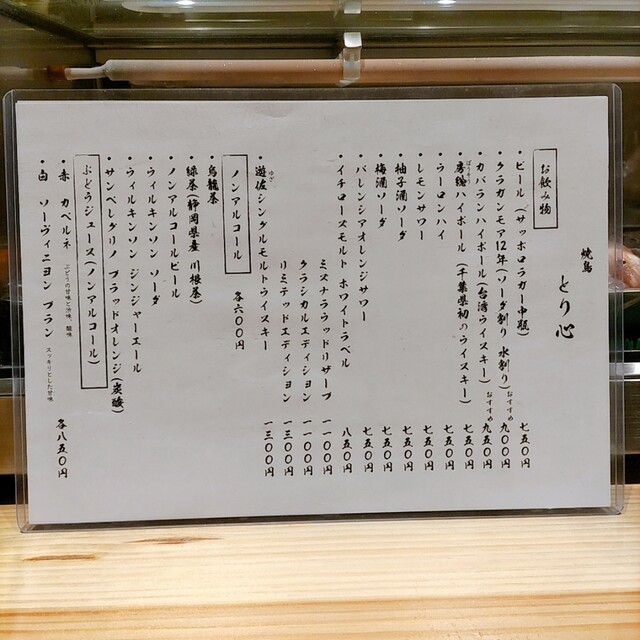 焼鳥 とり心
お飲み物
・ビール(サッポロラガー中瓶) 七五〇円
・クラガンモア12年(ソーダ割り 水割り) おすすめ 九〇〇円
・カバランハイボール(台湾ウイスキー) おすすめ 九五〇円
・房総ハイボール(千葉県初のウイスキー) 七五〇円
・ウーロンハイ 七五〇円
・レモンサワー 七五〇円
・柚子酒ソーダ 七五〇円
・梅酒ソーダ 七五〇円
・バレンシアオレンジサワー 七五〇円
・イチローズモルト ホワイトラベル 八五〇円
ミズナラウッドリザーブ 一一〇〇円
クラシカルエディション 一一〇〇円
リミテッドエディション 一三〇〇円
・遊佐シングルモルトウイスキー 一三〇〇円
ノンアルコール 各六〇〇円
・烏龍茶
・緑茶(静岡県産 川根茶)
・ノンアルコールビール
・ウィルキンソン ソーダ
・ウィルキンソン ジンジャーエール
・サンペレグリノ ブラッドオレンジ(炭酸)
ぶどうジュース(ノンアルコール)
・赤 カベルネ
・白 ソーヴィニヨン ブラン スッキリとした甘味 各八五〇円